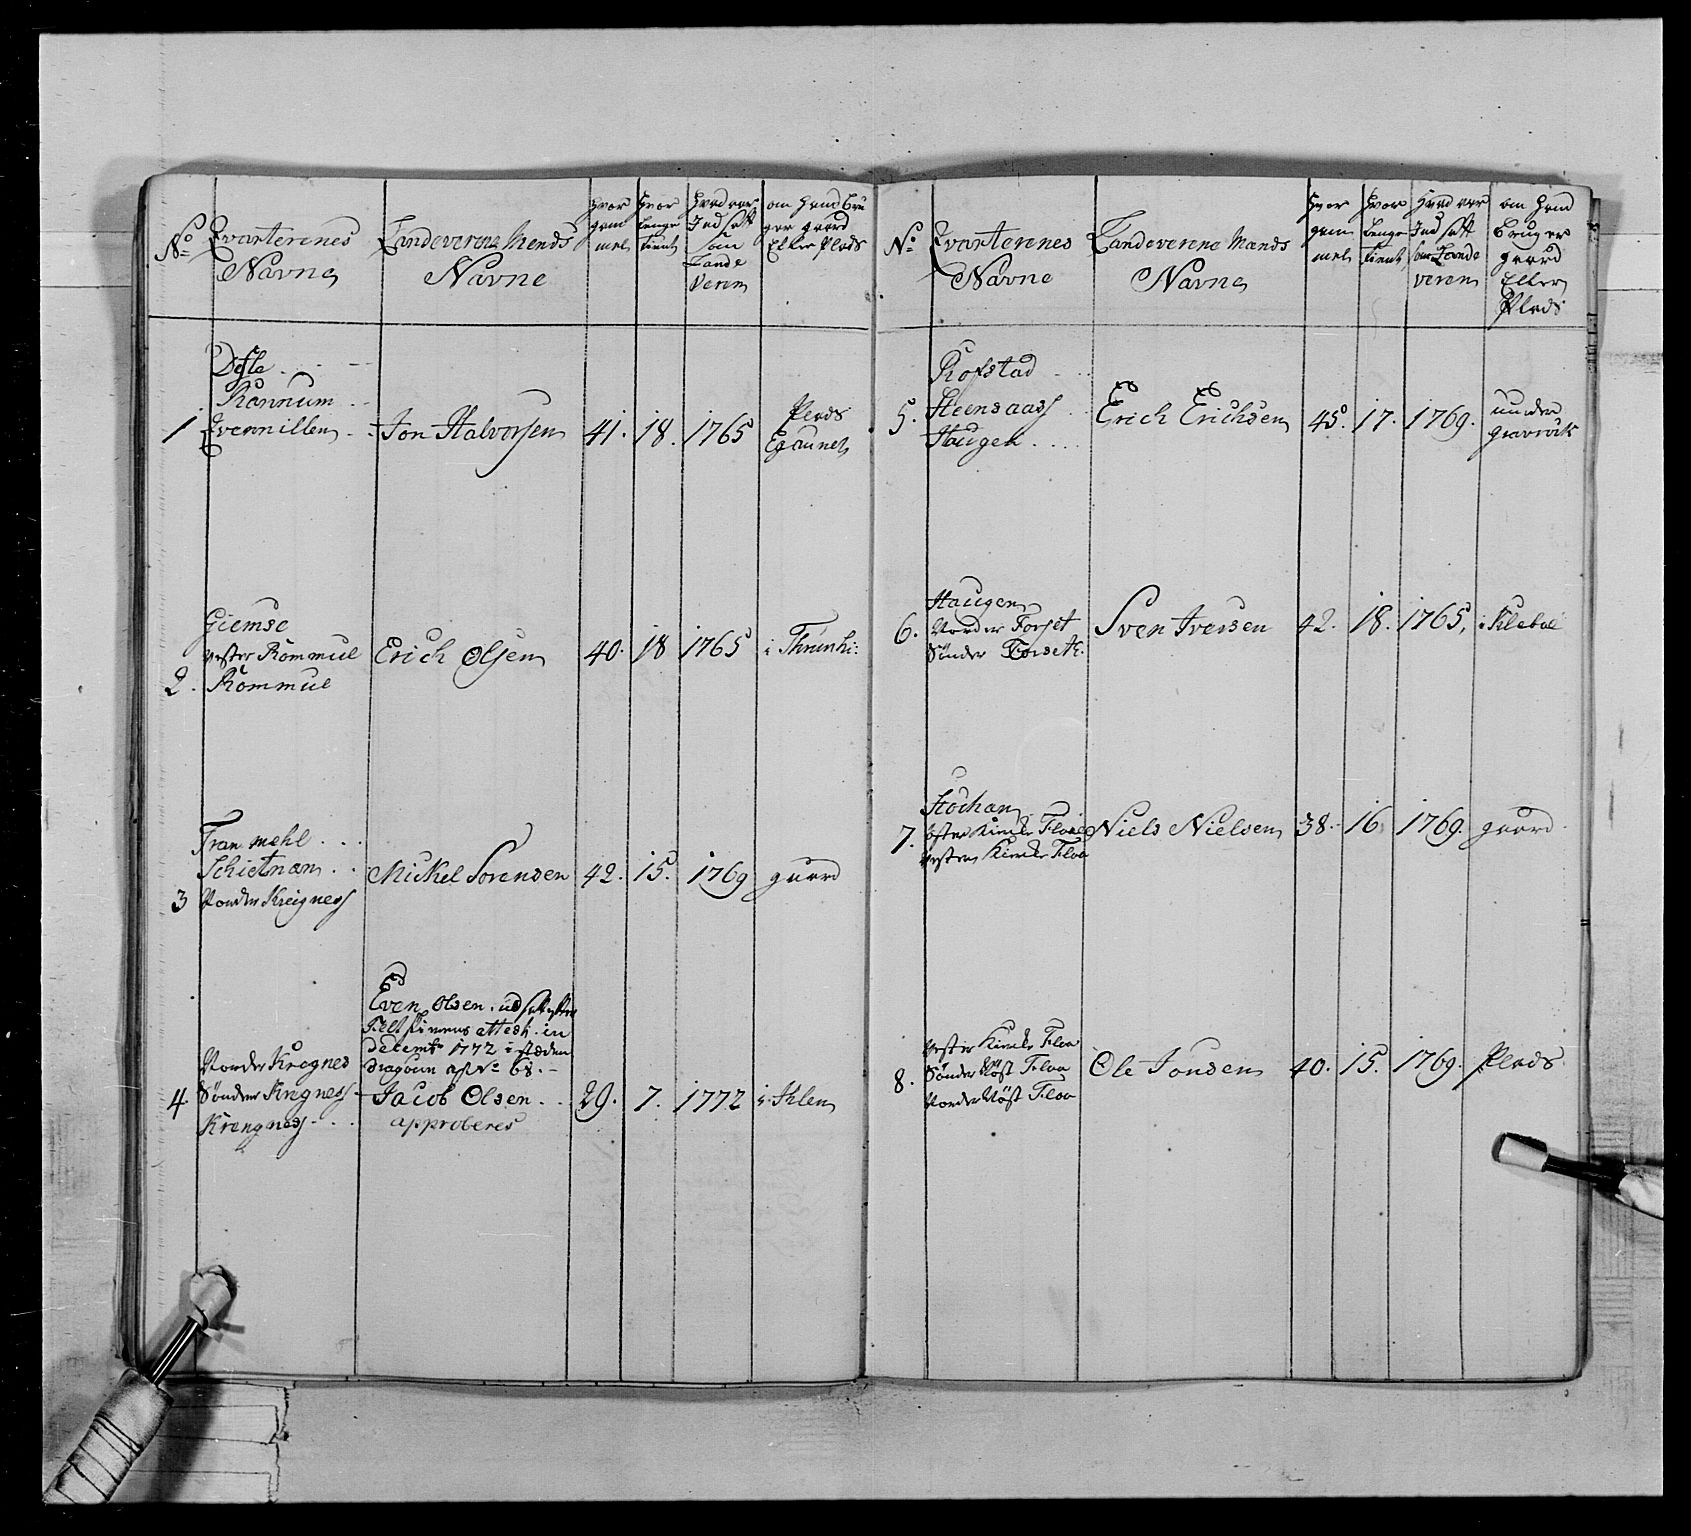 No
Qvarterenes
Navne
Landeverne Mends
Navne
Hvor
gam
mel
Hvor
lenge
tient
Hvad aar
Indsatt
som
Lande
Vern
om Hand bru
ger gaard
Eller Plads
1
Defle
Rønnum
Evennillen
Jon Halvorsen
41. 18. 1765
Plads
2.
Giemse
Vester Rommul
Rommul
Erich Olsen
40. 18 1765
i
3
Tranmehl
Schietnan
Norder Kreigness
Mickel Sorensen
42. 15. 1769
gaard
4
Norder Krognes
Sønder Krigness
Krengness
Even Olsen, udsatt efter
attest in
Decembr 1772 i steden
Dragoun af No 68.
Jacob Olsen
approberes
29. 7. 1772
i Ihlen
No
Qvarterenes
Navne
Landeverne Mands
Navne
Hvor
gam
mel
Hvor
lenge
tient
Hvad aar
Indsatt
som Lande
vern
om Hand
bruger
gaard
Eller
Plads
5.
Rofstad
Steensaass
Haugen
Erich Erichsen
45. 17. 1769.
under
6.
Haugen
Norder Forset
Sønder Forseth
Sven Iversen
42. 18. 1765,
i Kleboe
7.
Stochan
øster Kirke Floae
Vester Kirke Floa
Niels Nielsen
38. 16 1769.
gaard
8.
Vester Kirke Floa
Sønder Røst Floa
Norder Røst Floa
Ole Jonsen
40. 15. 1769.
Plads